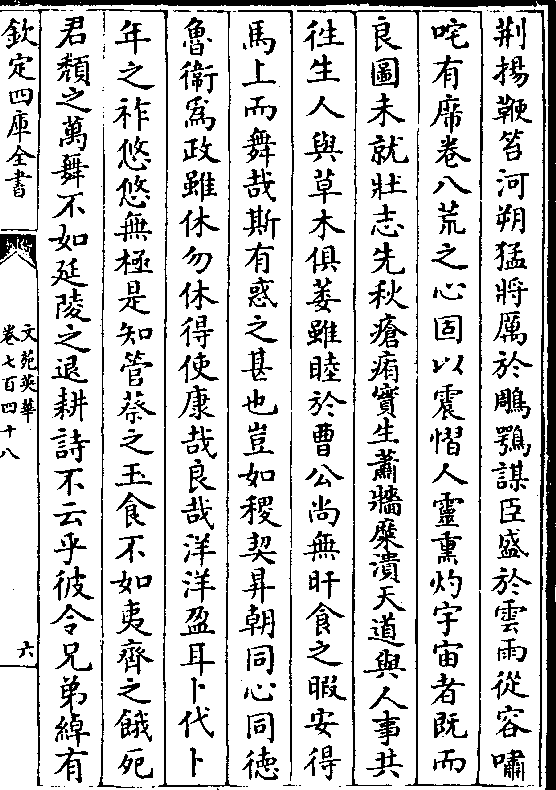 荆揚鞭笞河朔猛將厲於鵰鶚謀臣盛於雲雨從容嘯
咤有席卷八荒之心固以震慴人靈熏灼宇宙者既而
良圖未就壯志先秋瘡痏實生蕭牆糜潰天道與人事共
徃生人與草木俱萎雖睦於曹公尚無旰食之暇安得
馬上而舞哉斯有惑之甚也豈如稷契昇朝同心同徳
魯衞為政雖休勿休得使康哉良哉洋洋盈耳卜代卜
年之祚悠悠無極是知管蔡之玉食不如夷齊之餓死
君頽之萬舞不如延陵之退耕詩不云乎彼令兄弟綽有
欽定四庫全書
文苑英華
卷七百四十八
六